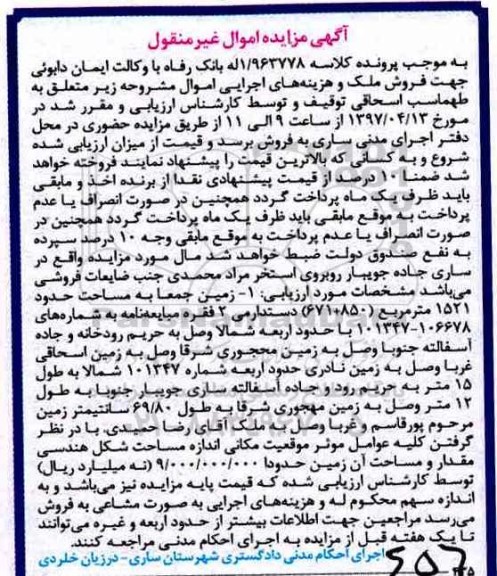 آگهی مزایده اموال غیرمنقول
به موجب پرونده کلاسه ۱/۹۶۳۷۷۸له بانک رفاه با وکالت ایمان دابوئی
جهت فروش ملک و هزینه‌های اجرایی اموال مشروحه زیر متعلق به
طهماسب اسحاقی توقیف و توسط کارشناس ارزیابی و مقرر شد در
مورخ ۱۳۹۷/۰۴/۱۳ از ساعت ۹ الی ۱۱ از طریق مزایده حضوری در محل
دفتر اجرای مدنی ساری به فروش برسد و قیمت از میزان ارزیابی شده
شروع و به کسانی که بالاترین قیمت را پیشنهاد نمایند فروخته خواهد
شد ضمنا ۱۰ درصد از قیمت پیشنهادی نقدا از برنده اخذ و مابقی
باید ظرف یک ماه پرداخت گردد همچنین در صورت انصراف یا عدم
پرداخت به موقع مابقی باید ظرف یک ماه پرداخت گردد همچنین در
صورت انصراف یا عدم پرداخت به موقع مابقی وجه ۱۰ درصد سپرده
به نفع صندوق دولت ضبط خواهد شد مال مورد مزایده واقع در
ساری جاده جویبار روبروی استخر مراد محمدی جنب ضایعات فروشی
می‌باشد مشخصات مورد ارزیابی: ۱- زمین جمعا به مساحت حدود
۱۵۲۱ مترمربع (۶۷۱+۸۵۰) دستدارمی ۲ فقره مبایعه‌نامه به شماره‌های
۱۰۶۶۷۸-۱۰۱۳۴۷ با حدود اربعه شمالا وصل به حریم رودخانه و جاده
آسفالته جنوبا وصل به زمین محجوری شرقا وصل به زمین اسحاقی
غربا وصل به زمین نادری حدود اربعه شماره ۱۰۱۳۴۷ شمالا به طول
۱۵ متر به حریم رود و جاده آسفالته ساری جویبار جنوبا به طول
۱۲ متر وصل به زمین مهجوری شرقا به طول ۶۹/۸۰ سانتیمتر زمین
مرحوم پورقاسم و غربا وصل به ملک آقای رضا حمیدی. با در نظر
گرفتن کلیه عوامل موثر موقعیت مکانی اندازه مساحت شکل هندسی
مقدار و مساحت آن زمین حدودا ۹/۰۰۰/۰۰۰/۰۰۰ (نه میلیارد ریال)
توسط کارشناس ارزیابی شده که قیمت پایه مزایده نیز می‌باشد و به
اندازه سهم محکوم له و هزینه‌های اجرایی به صورت مشاعی به فروش
می‌رسد مراجعین جهت اطلاعات بیشتر از حدود اربعه و غیره می‌توانند
تا یک هفته قبل از مزایده به اجرای احکام مدنی مراجعه کنند.
اجرای احکام مدنی دادگستری شهرستان ساری- درزیان خلردی